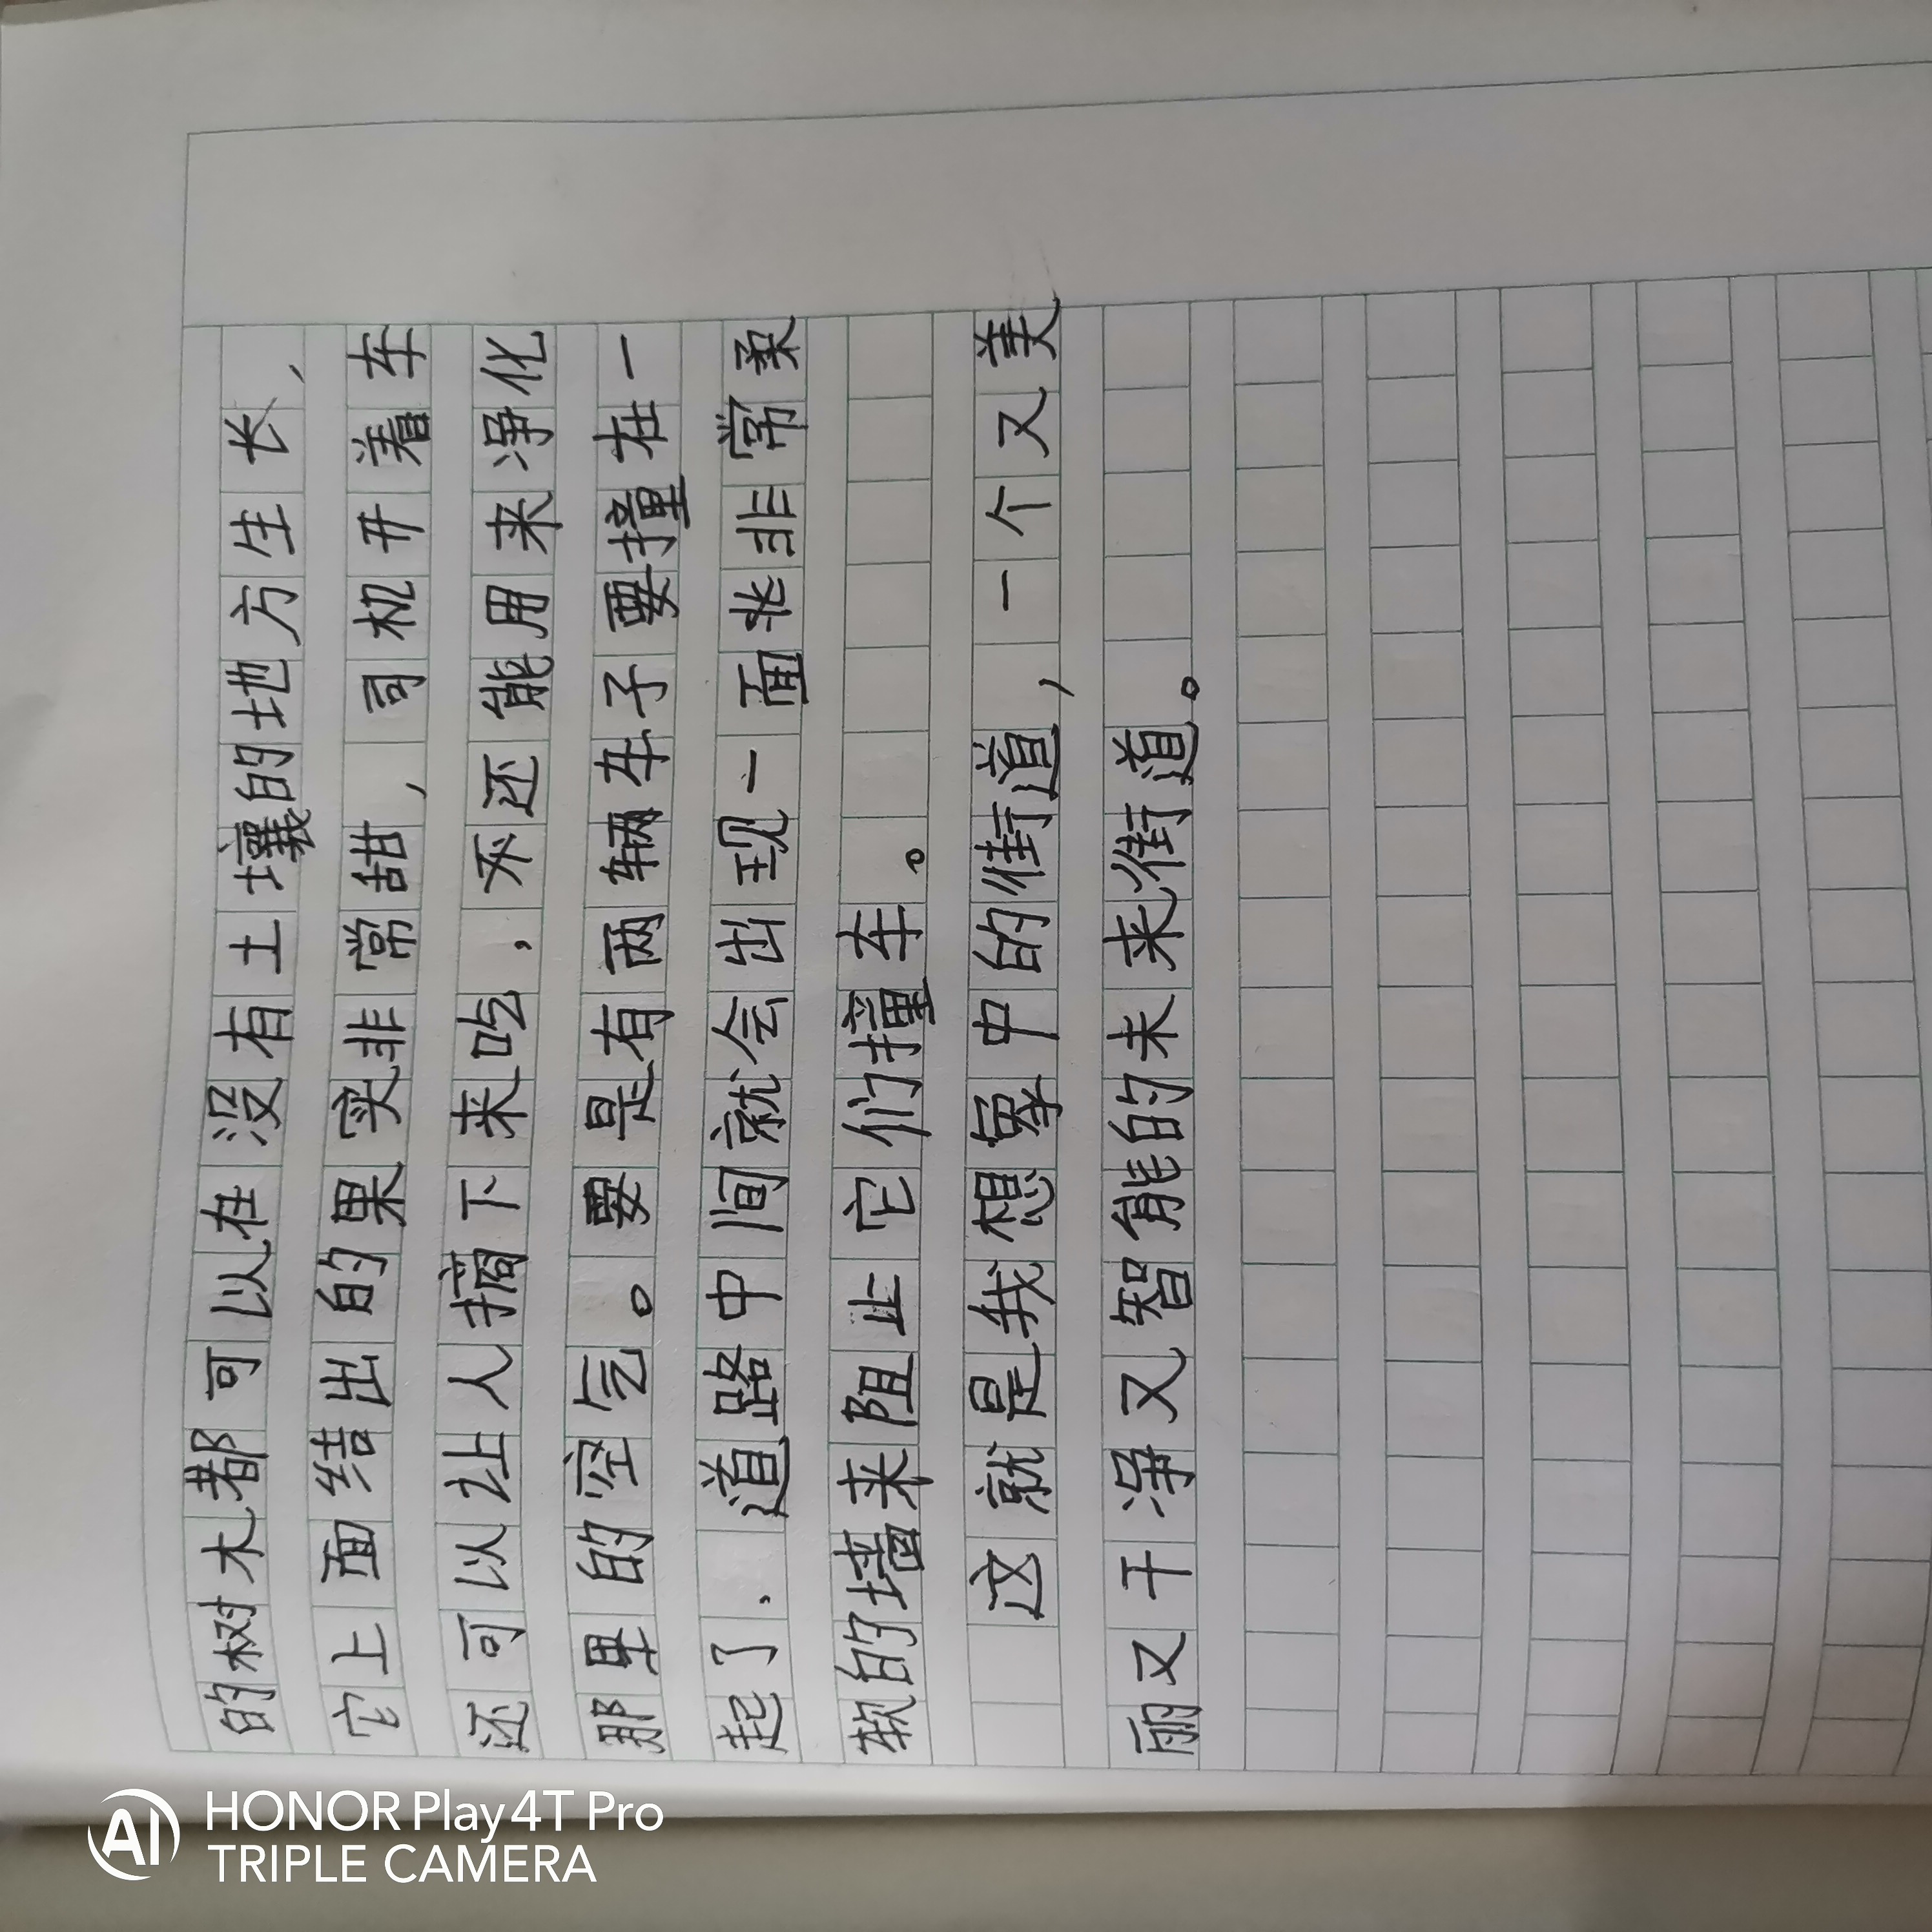 的树木都可以在没有土壤的地方生长、
它上面结出的果实非常甜，司机开着车
还可以让人摘下来吃，不还能用来净化
那里的空气。要是有两辆车子要撞在一
起了，道路中间就会出现一面非常柔
软的墙来阻止它们撞车。
这就是我想象中的街道，一个又美
丽又干净又智能的未来街道。
HONOR Play4T Pro
TRIPLE CAMERA
AI